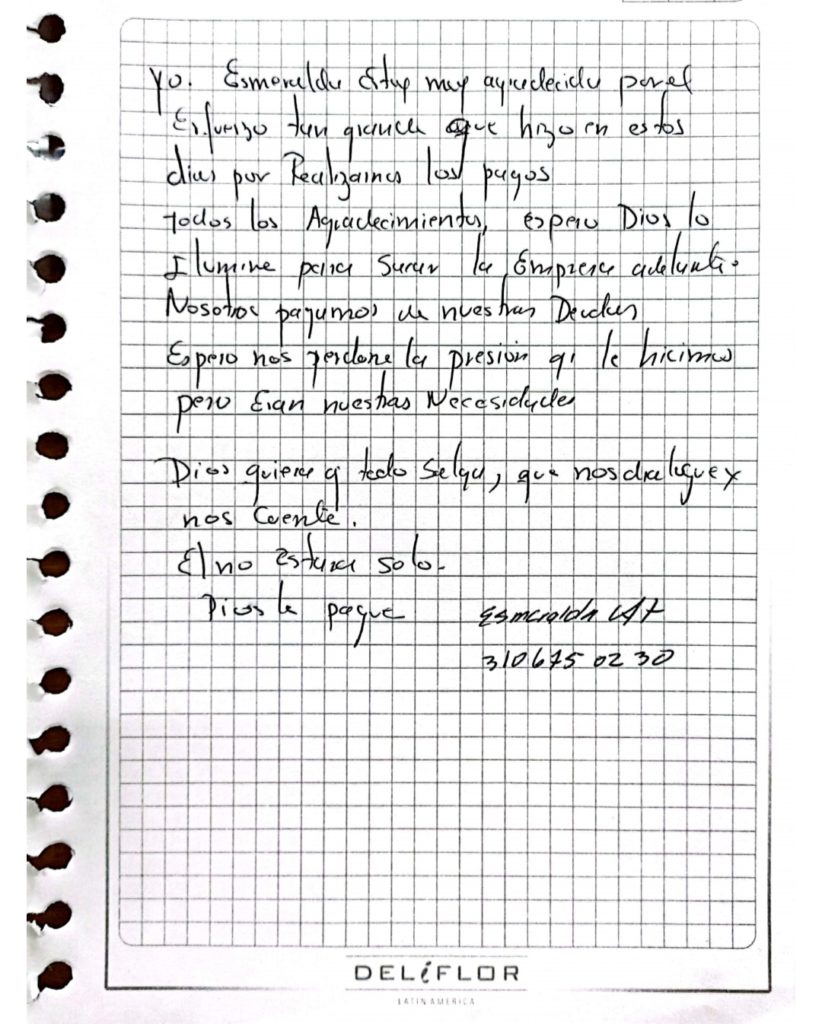 Yo. Esmeralda Estoy muy agradecida por el
Esfuerzo tan grande que hizo en estos
dias por Realizarnos los pagos
todos los Agradecimientos, espero Dios lo
Ilumine para Sacar la Empresa adelante.
Nosotros pagamos de nuestras Deudas
Espero nos perdone la presión q' le hicimos
pero Eran nuestras Necesidades
Dios quiera q todo Salga, que nos
nos Cuente.
El no Estara solo.
Dios le pague
Esmeralda
310 675 02 30
DELiFLOR
LATIN AMERICA